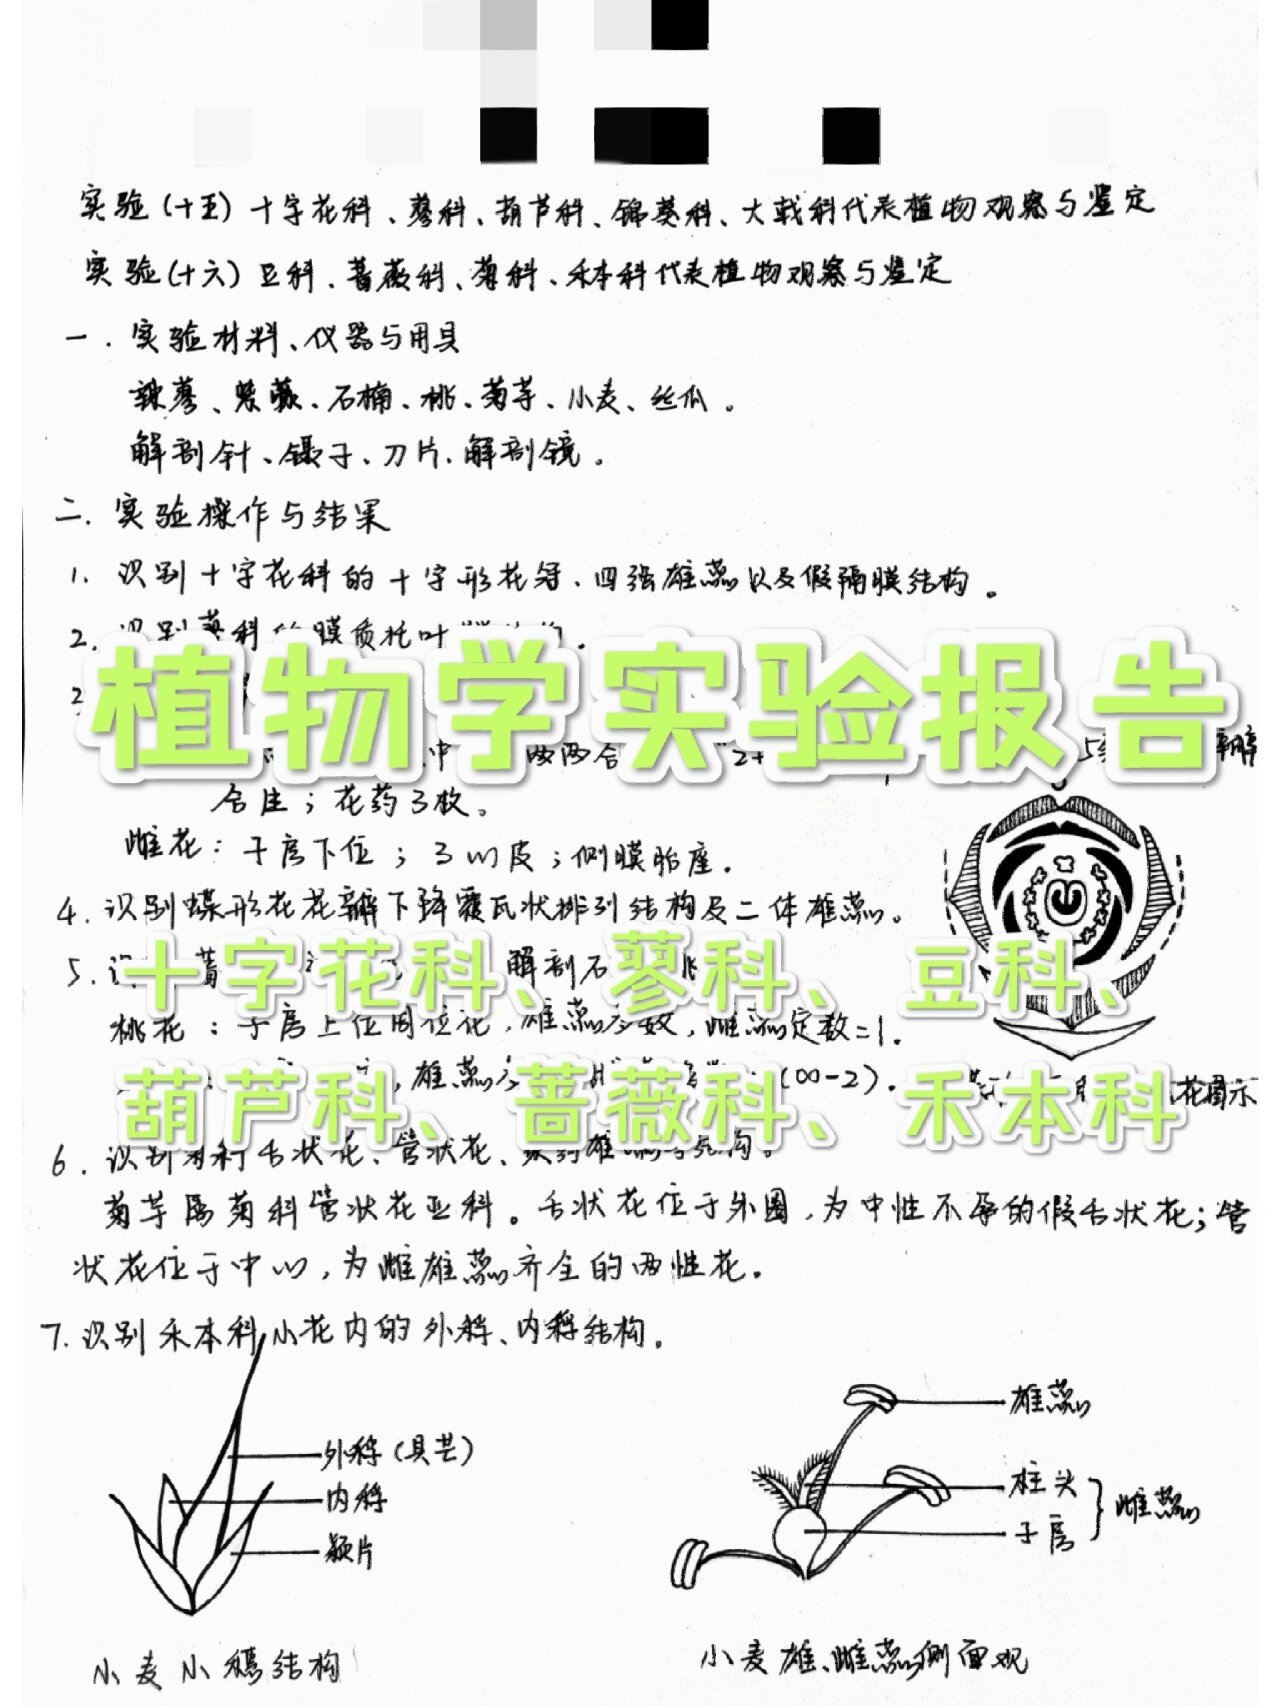 实验(十五)十字花科、蓼科、葫芦科、锦葵科、大戟科代表植物观察与鉴定
实验(十六)豆科、蔷薇科、菊科、禾本科代表植物观察与鉴定
一.实验材料、仪器与用具
辣蓼、紫薇、石楠、桃、菊芋、小麦、丝瓜。
解剖针、镊子、刀片、解剖镜。
二.实验操作与结果
1.识别十字花科的十字形花冠、四强雄蕊以及假隔膜结构。
2.识别蓼科的膜质托叶
植物学实验报告
两两合
合生;花药3枚。
雌花:子房下位;3心皮;侧膜胎座。
4.识别蝶形花花瓣下降覆瓦状排列结构及二体雄蕊。
5.
解剖石
十字花科、蓼科、豆科、
桃花:子房上位周位花,雄蕊多数,雌蕊定数=1.
,雄蕊
(∞-2).
花图示
葫芦科、蔷薇科、禾本科
6.识别菊科舌状花、管状花、聚药雄蕊等结构。
菊芋属菊科管状花亚科。舌状花位于外围,为中性不孕的假舌状花;管
状花位于中心,为雌雄蕊齐全的两性花。
7.识别禾本科小花内的外稃、内稃结构。
外稃(具芒)
内稃
颖片
小麦小穗结构
雄蕊
柱头
子房
雌蕊
小麦雄、雌蕊侧面观